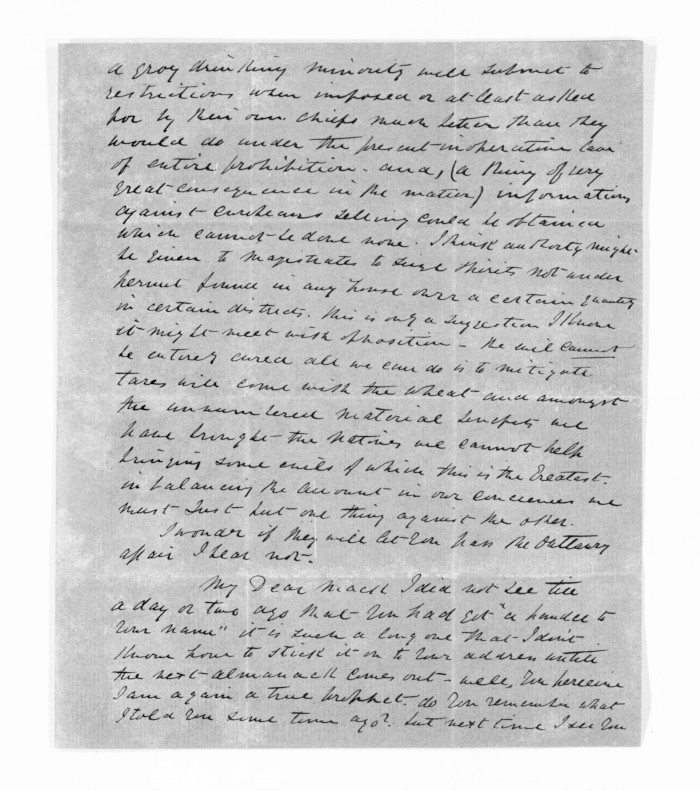 a grog drinking minority will submit to
restrictions when imposed or at least asked
for by their own chiefs much better than they
would do under the present inoperative law
of entire prohibition - and, (a thing of very
great consequence in the matter) information
against Europeans selling could be obtained
which cannot be done now. I think authority might
be given to magistrates to seize spirits not under
permit found in any house over a certain quantity
in certain districts. This is only a suggestion I know
it might meet with opposition - the evil cannot
be entirely cured all we can do is to mitigate
tares will come with the wheat and amongst
the unnumbered material benefits we
have brought the Natives we cannot help
bringing some evils of which this is the Greatest.
in balancing the account in our conciences we
must just put one thing against the other.
I wonder if they will let you pass the Outlawry
affair I hear not.
My Dear Mack I did not see till
a day or two ago that you had got "a handle to
your name" it is such a long one that I don't
know how to stick it on to your address until
the next almanack comes out - well, you perceive
I am again a true prophet. do you remember what
I told you some time ago? but next time I see you